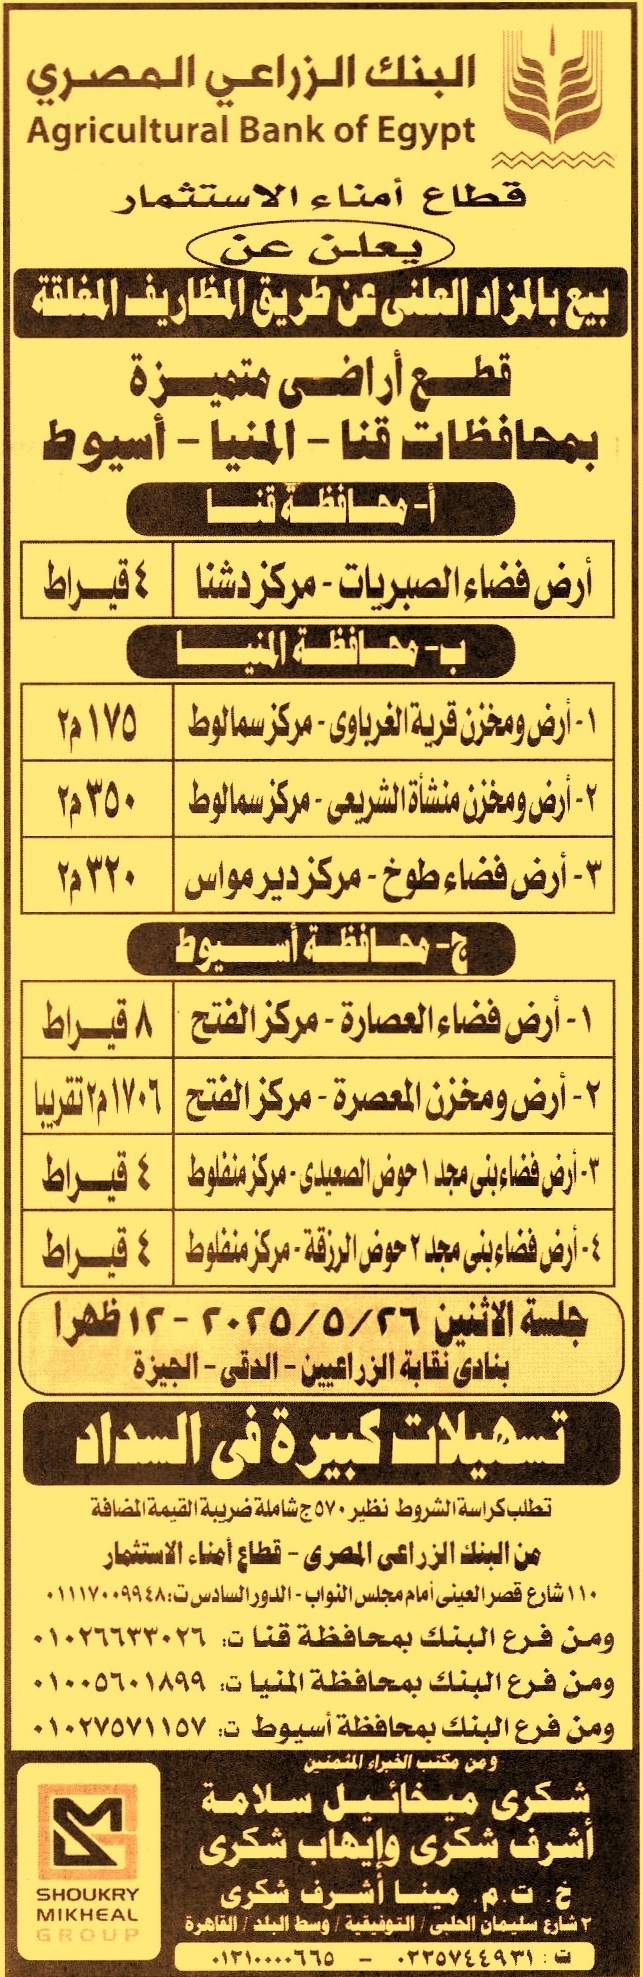 البنك الزراعي المصري
Agricultural Bank of Egypt
قطاع أمناء الاستثمار
يعلن عن
بيع بالمزاد العلنى عن طريق المظاريف المغلقة
قطع أراضى متميزة
بمحافظات قنا - المنيا - أسيوط
أ- محافظة قنا
أرض فضاء الصبريات - مركز دشنا ٤ قيراط
ب- محافظة المنيا
١- أرض ومخزن قرية الغرباوى - مركز سمالوط ١٧٥ م٢
٢- أرض ومخزن منشأة الشريعى - مركز سمالوط ٣٥٠ م٢
٣- أرض فضاء طوخ - مركز ديرمواس ٣٢٠ م٢
ج- محافظة أسيوط
١- أرض فضاء العصارة - مركز الفتح ٨ قيراط
٢- أرض ومخزن المعصرة - مركز الفتح ١٧٠٦ م٢ تقريبا
٣- أرض فضاء بنى مجد ١ حوض الصعيدى - مركز منفلوط ٤ قيراط
٤- أرض فضاء بنى مجد ٢ حوض الرزقة - مركز منفلوط ٤ قيراط
جلسة الاثنين ٢٠٢٥/٥/٢٦ - ١٢ ظهرا
بنادى نقابة الزراعيين - الدقى - الجيزة
تسهيلات كبيرة فى السداد
تطلب كراسة الشروط نظير ٥٧٠ ج شاملة ضريبة القيمة المضافة
من البنك الزراعى المصرى - قطاع أمناء الاستثمار
١١٠ شارع قصر العينى أمام مجلس النواب - الدور السادس ت: ٠١١١٧٠٠٩٩٤٨
ومن فرع البنك بمحافظة قنا ت: ٠١٠٢٦٦٣٣٠٢٦
ومن فرع البنك بمحافظة المنيا ت: ٠١٠٠٥٦٠١٨٩٩
ومن فرع البنك بمحافظة أسيوط ت: ٠١٠٢٧٥٧١١٥٧
ومن مكتب الخبراء المثمنين
شكرى ميخائيل سلامة
أشرف شكرى وإيهاب شكرى
خ. ت. م. مينا أشرف شكرى
٢ شارع سليمان الحلبى / التوفيقية / وسط البلد / القاهرة
ت: ٠٢٢٥٧٤٤٩٣١ - ٠١٢١٠٠٠٠٦٦٥
SHOUKRY
MIKHEAL
GROUP